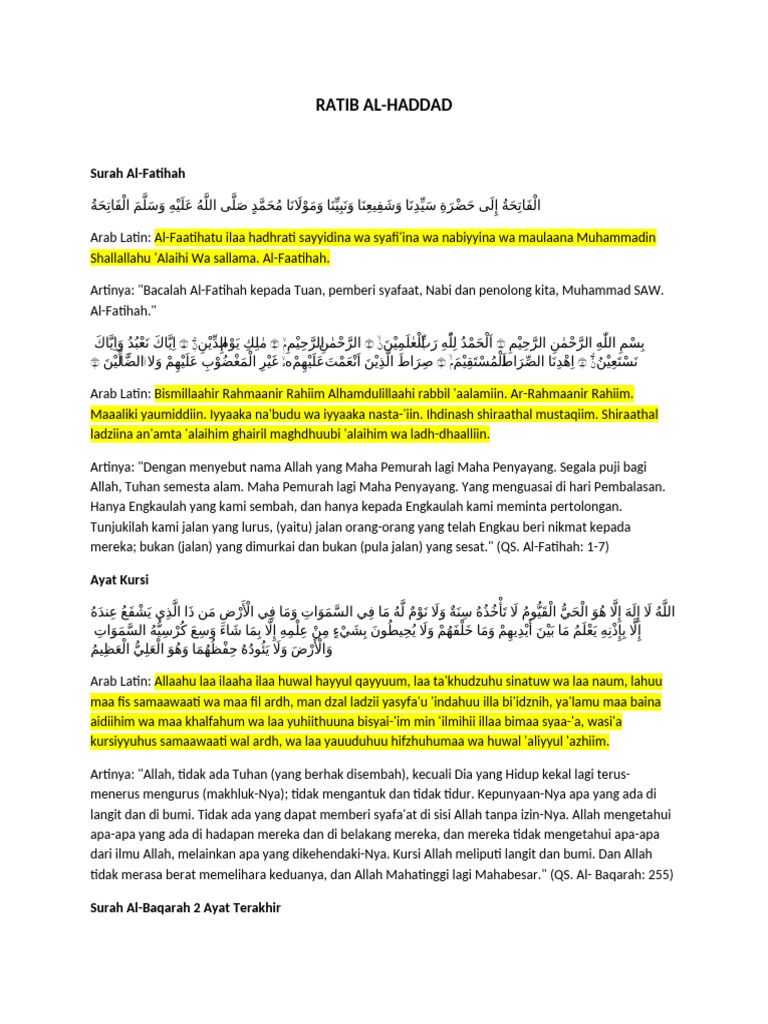 RATIB AL-HADDAD
Surah Al-Fatihah
الْفَاتِحَةُ إِلَى حَضْرَةِ سَيِّدِنَا وَشَفِيعِنَا وَنَبِيِّنَا وَمَوْلَانَا مُحَمَّدٍ صَلَّى اللَّهُ عَلَيْهِ وَسَلَّمَ الْفَاتِحَةُ
Arab Latin: Al-Faatihatu ilaa hadhrati sayyidina wa syafi'ina wa nabiyyina wa maulaana Muhammadin
Shallallahu 'Alaihi Wa sallama. Al-Faatihah.
Artinya: "Bacalah Al-Fatihah kepada Tuan, pemberi syafaat, Nabi dan penolong kita, Muhammad SAW.
Al-Fatihah."
بِسْمِ اللّٰهِ الرَّحْمٰنِ الرَّحِيْمِ ۝ اَلْحَمْدُ لِلّٰهِ رَبِّ الْعٰلَمِيْنَۙ ۝ الرَّحْمٰنِ الرَّحِيْمِۙ ۝ مٰلِكِ يَوْمِ الدِّيْنِۗ ۝ اِيَّاكَ نَعْبُدُ وَاِيَّاكَ
نَسْتَعِيْنُۗ ۝ اِهْدِنَا الصِّرَاطَ الْمُسْتَقِيْمَۙ ۝ صِرَاطَ الَّذِيْنَ اَنْعَمْتَ عَلَيْهِمْ ەۙ غَيْرِ الْمَغْضُوْبِ عَلَيْهِمْ وَلَا الضَّاۤلِّيْنَ ۝
Arab Latin: Bismillaahir Rahmaanir Rahiim Alhamdulillaahi rabbil 'aalamiin. Ar-Rahmaanir Rahiim.
Maaaliki yaumiddiin. Iyyaaka na'budu wa iyyaaka nasta-'iin. Ihdinash shiraathal mustaqiim. Shiraathal
ladziina an'amta 'alaihim ghairil maghdhuubi 'alaihim wa ladh-dhaalliin.
Artinya: "Dengan menyebut nama Allah yang Maha Pemurah lagi Maha Penyayang. Segala puji bagi
Allah, Tuhan semesta alam. Maha Pemurah lagi Maha Penyayang. Yang menguasai di hari Pembalasan.
Hanya Engkaulah yang kami sembah, dan hanya kepada Engkaulah kami meminta pertolongan.
Tunjukilah kami jalan yang lurus, (yaitu) jalan orang-orang yang telah Engkau beri nikmat kepada
mereka; bukan (jalan) yang dimurkai dan bukan (pula jalan) yang sesat." (QS. Al-Fatihah: 1-7)
Ayat Kursi
اللَّهُ لَا إِلَهَ إِلَّا هُوَ الْحَيُّ الْقَيُّومُ لَا تَأْخُذُهُ سِنَةٌ وَلَا نَوْمٌ لَّهُ مَا فِي السَّمَوَاتِ وَمَا فِي الْأَرْضِ مَن ذَا الَّذِي يَشْفَعُ عِندَهُ
إِلَّا بِإِذْنِهِ يَعْلَمُ مَا بَيْنَ أَيْدِيهِمْ وَمَا خَلْفَهُمْ وَلَا يُحِيطُونَ بِشَيْءٍ مِنْ عِلْمِهِ إِلَّا بِمَا شَاءَ وَسِعَ كُرْسِيُّهُ السَّمَوَاتِ
وَالْأَرْضَ وَلَا يَئُودُهُ حِفْظُهُمَا وَهُوَ الْعَلِيُّ الْعَظِيمُ
Arab Latin: Allaahu laa ilaaha ilaa huwal hayyul qayyuum, laa ta'khudzuhu sinatuw wa laa naum, lahuu
maa fis samaawaati wa maa fil ardh, man dzal ladzii yasyfa'u 'indahuu illa bi'idznih, ya'lamu maa baina
aidiihim wa maa khalfahum wa laa yuhiithuuna bisyai-'im min 'ilmihii illaa bimaa syaa-'a, wasi'a
kursiyyuhus samaawaati wal ardh, wa laa yauuduhuu hifzhuhumaa wa huwal 'aliyyul 'azhiim.
Artinya: "Allah, tidak ada Tuhan (yang berhak disembah), kecuali Dia yang Hidup kekal lagi terus-
menerus mengurus (makhluk-Nya); tidak mengantuk dan tidak tidur. Kepunyaan-Nya apa yang ada di
langit dan di bumi. Tidak ada yang dapat memberi syafa'at di sisi Allah tanpa izin-Nya. Allah mengetahui
apa-apa yang ada di hadapan mereka dan di belakang mereka, dan mereka tidak mengetahui apa-apa
dari ilmu Allah, melainkan apa yang dikehendaki-Nya. Kursi Allah meliputi langit dan bumi. Dan Allah
tidak merasa berat memelihara keduanya, dan Allah Mahatinggi lagi Mahabesar." (QS. Al- Baqarah: 255)
Surah Al-Baqarah 2 Ayat Terakhir